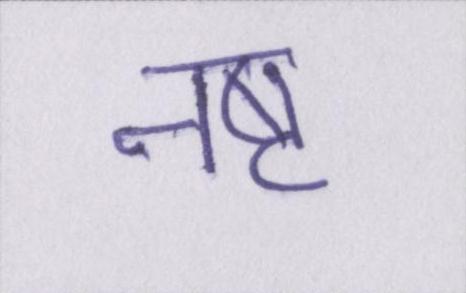 नष्ट